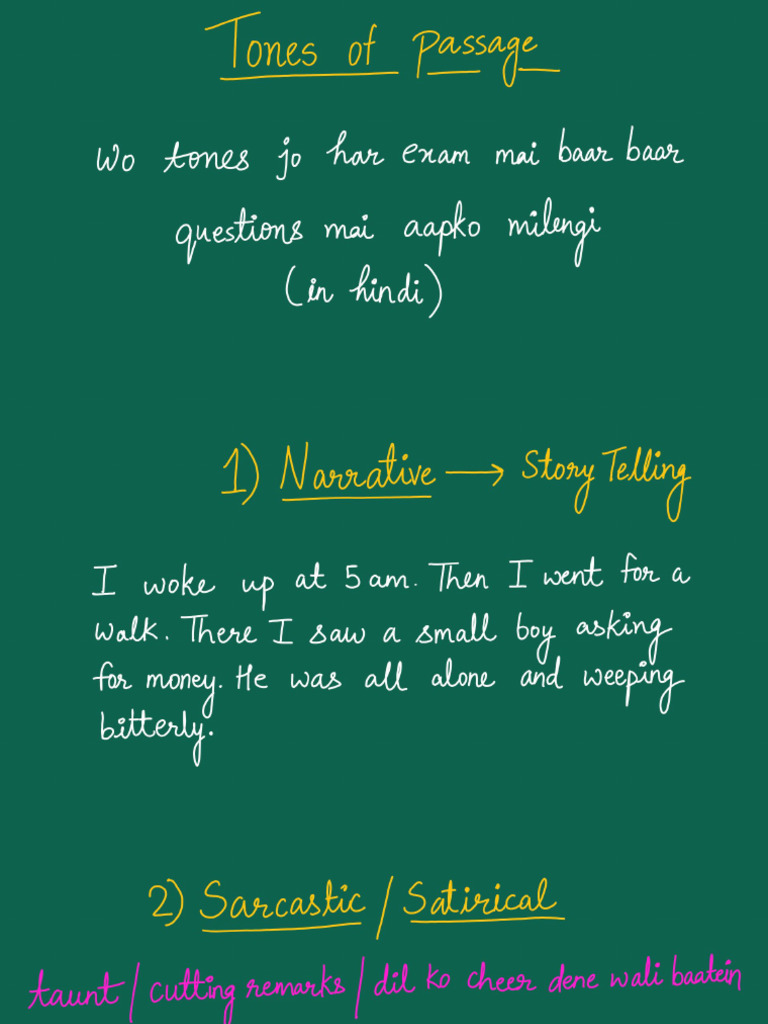 Tones of Passage
Wo tones jo har exam mai baar baar
questions mai aapko milengi
(in hindi)
1) Narrative → Story Telling
I woke up at 5 am. Then I went for a
walk. There I saw a small boy asking
for money. He was all alone and weeping
bitterly.
2) Sarcastic / Satirical
taunt / cutting remarks / dil ko cheer dene wali baatein